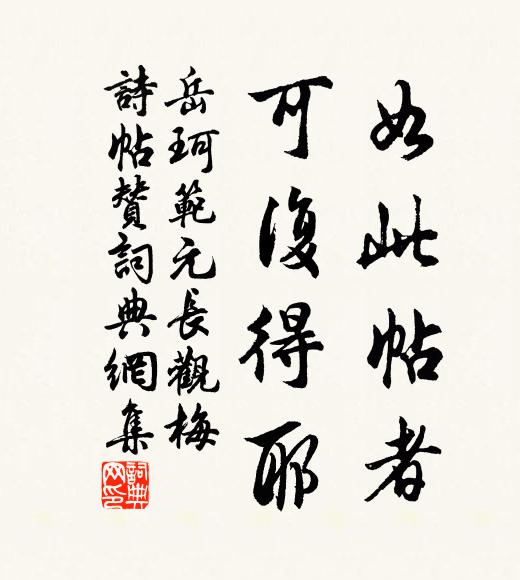 如此帖者
可復得耶
岳珂範元長觀梅
詩帖贊詞典網集
詞典网印